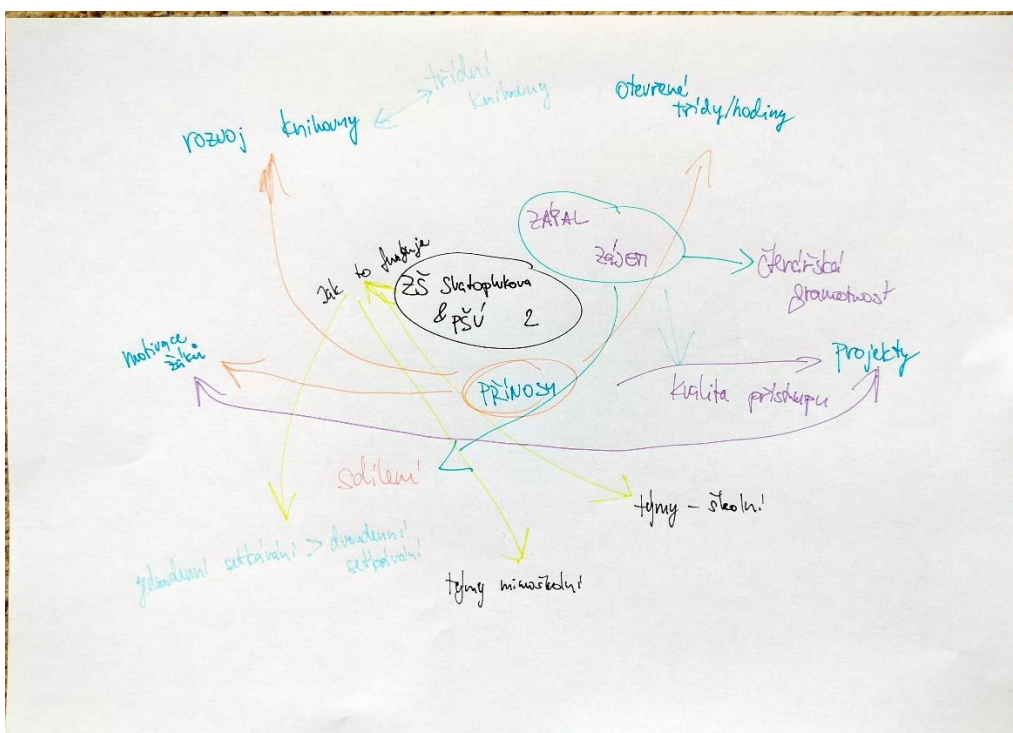 třídní
knihovny
rozvoj knihovny
otevřené
třídy/hodiny
ZÁPAL
zájem
čtenářská
gramotnost
Jak to funguje
ZŠ Svatoplukova
& PŠÚ 2
motivace
žáků
PŘÍNOSY
projekty
kvalita přístupu
sdílení
týmy - školní
jednodenní setkávání > dvoudenní
setkávání
týmy mimoškolní